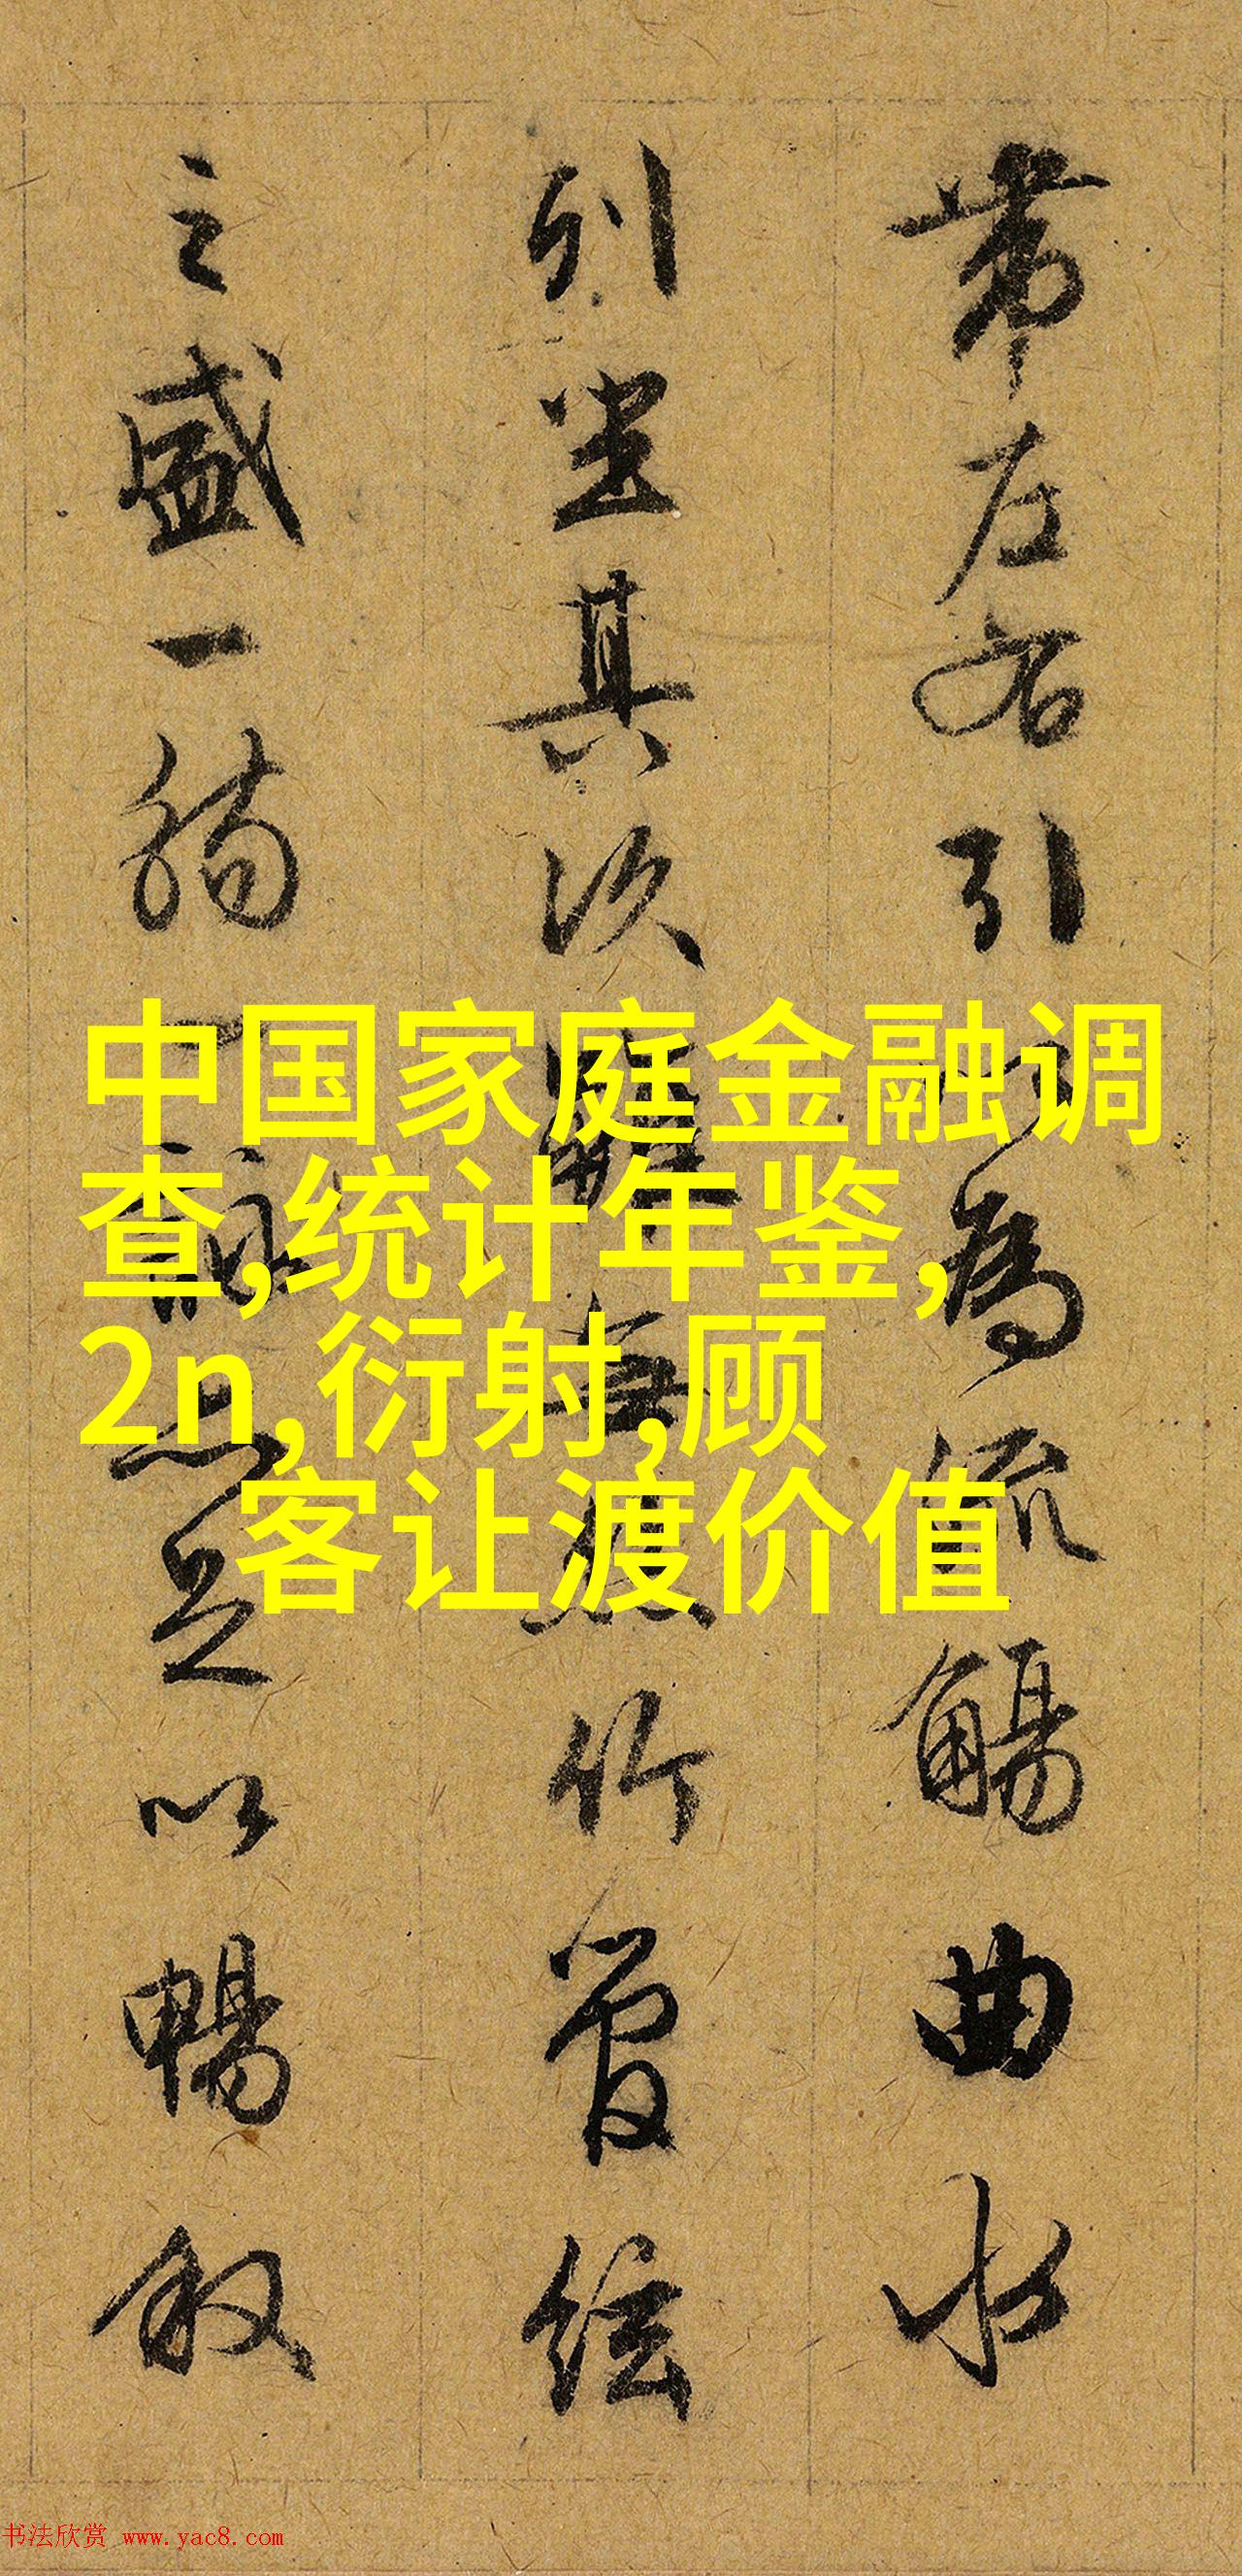 带左右引以為流觴曲水
列坐其次雖無絲竹管絃
之盛一觴一詠亦足以暢敘
中国家庭金融调
查,统计年鉴,
2n,衍射,顾
客让渡价值
书法欣赏 www.yac8.com